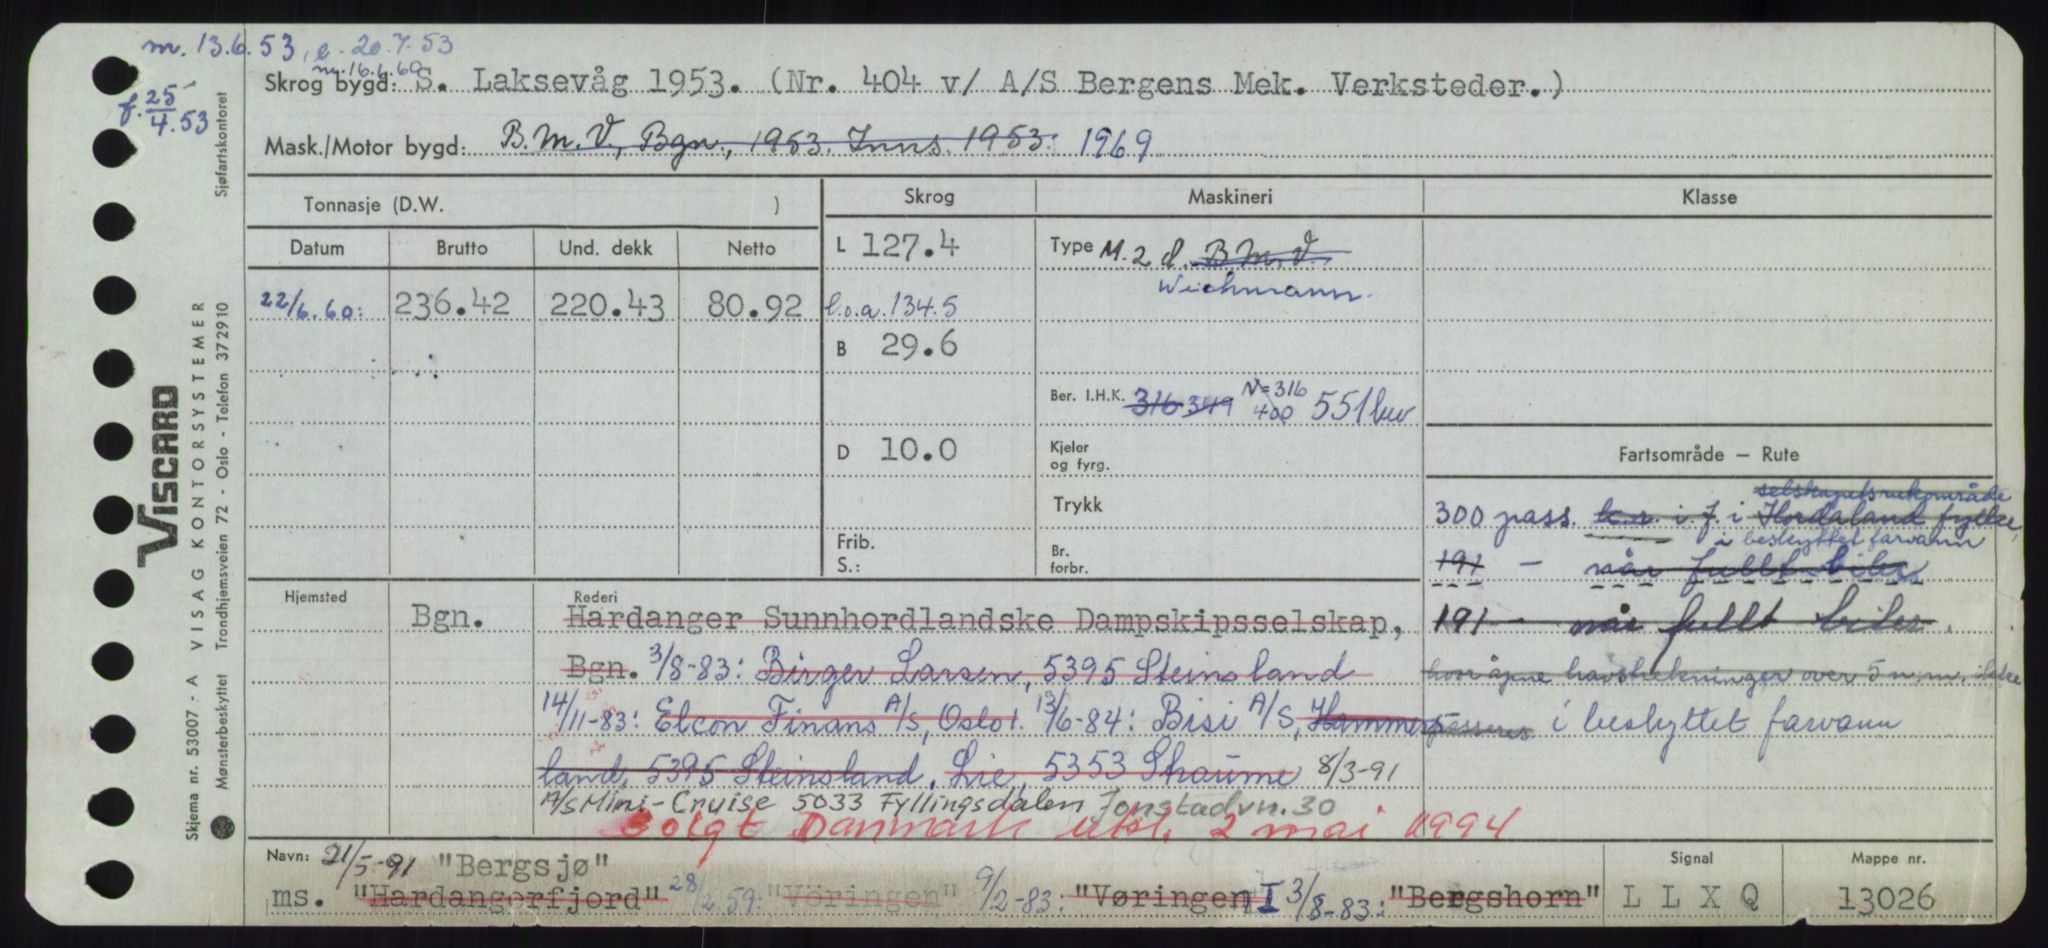 m. 13.6.53, e. 20.7.53
m. 16.6.60
f. 25/4.53
Skrog bygd: S. Laksevåg 1953. (Nr. 404 v/ A/S Bergens Mek. Verksteder.)
Mask./Motor bygd: B.M.V., Bgn., 1953. Inns. 1953. 1969
Tonnasje (D.W. )
Skrog
Maskineri
Klasse
Datum Brutto Und. dekk Netto
L 127.4
Type M. 2 d. B.M.V.
Wichmann.
22/6.60: 236.42 220.43 80.92
l.o.a. 134.5
B 29.6
Ber. I.H.K. 316 349 N=316 400 551 kw
D 10.0
Kjeler
og fyrg.
Trykk
Frib.
S.:
Br.
forbr.
Fartsområde — Rute
selskapets ruteområde
300 pass. k.r. i. f. i Hordaland fylke,
i beskyttet farvann
191 — når fullt biler
191 — når fullt biler.
hvor åpne havstrekninger over 5 n.m. ikke
passeres i beskyttet farvann
Hjemsted Bgn.
Rederi
Hardanger Sunnhordlandske Dampskipsselskap,
Bgn. 3/8-83: Birger Larsen, 5395 Steinsland
14/11-83: Elcon Finans A/S, Oslo 1. 13/6-84: Bisi A/S, Hammers-
land, 5395 Steinsland, Lie, 5353 Straume 8/3-91
A/S Mini-Cruise 5033 Fyllingsdalen Jonstadvn. 30
Solgt Danmark utkl. 2 mai 1994
Navn: 21/5-91 "Bergsjø"
ms. "Hardangerfjord" 28/2.59: "Vöringen" 9/2-83: "Vøringen I 3/8-83: "Bergshorn"
Signal
L L X Q
Mappe nr.
13026
VISCARD
VISAG KONTORSYSTEMER
Skjema nr. 53007 - A
Mønsterbeskyttet Trondhjemsveien 72 - Oslo - Telefon 372910
Sjøfartskontoret